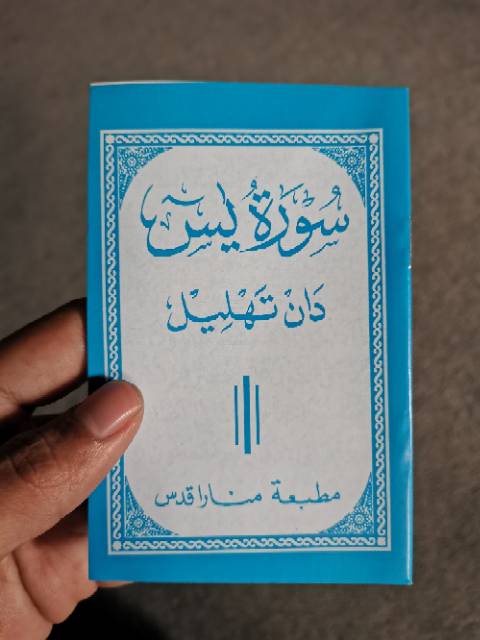 سُوْرَةُ يٰسٓ
دَانْ تَهْلِيْل
مطبعة منارا قدس